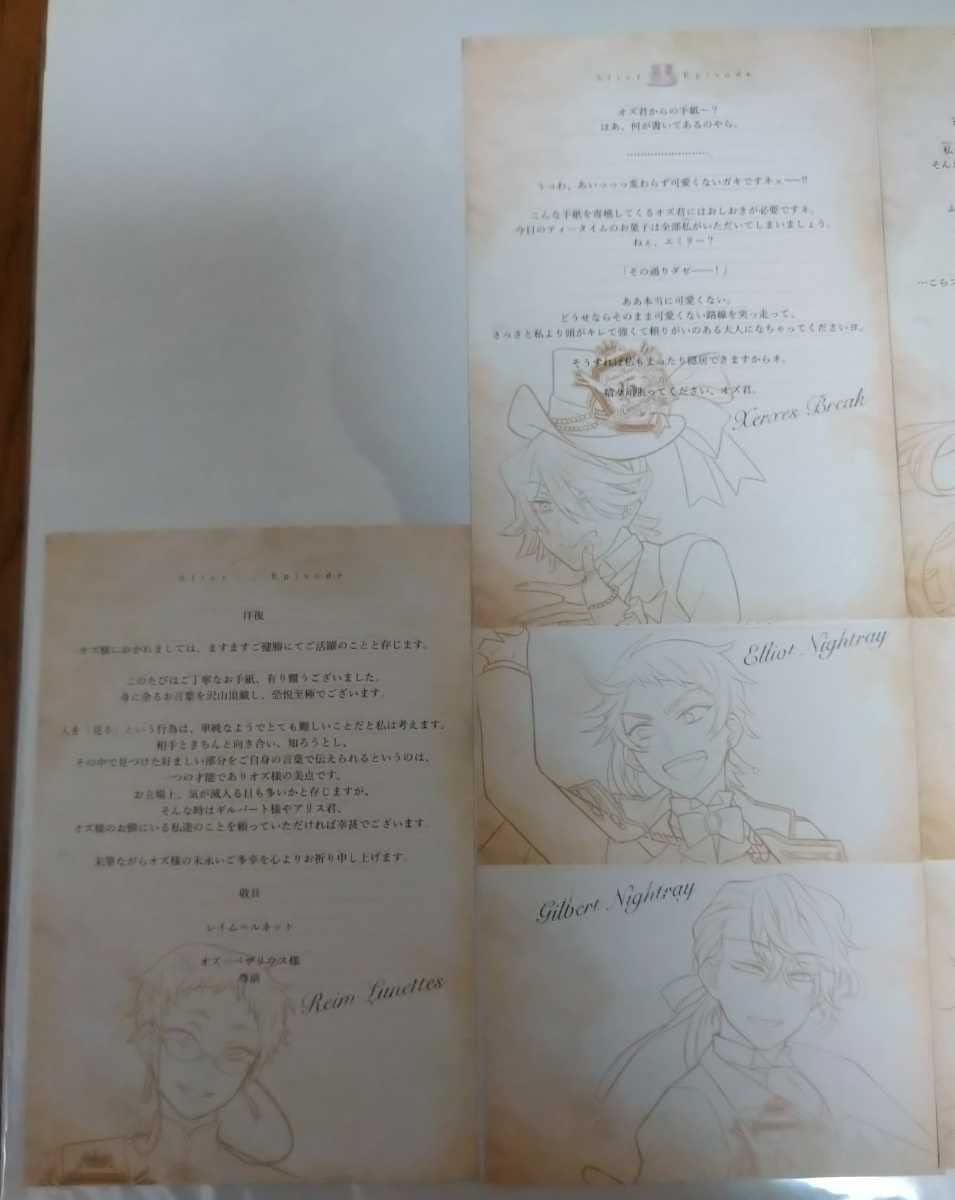 After Episode
オズ君からの手紙〜？
はあ、何が書いてあるのやら。
........................
うっわ、あいっっっ変わらず可愛くないガキですネェ——!!
こんな手紙を寄越してくるオズ君にはおしおきが必要ですネ。
今日のティータイムのお菓子は全部私がいただいてしまいましょう。
ねぇ、エミリー？
「その通りダゼ——！」
ああ本当に可愛くない。
どうせならそのまま可愛くない路線を突っ走って、
さっさと私より頭がキレて強くて頼りがいのある大人になちゃってくださいヨ。
そうすれば私もまったり隠居できますからネ。
張ってください、オズ君。
Xerxes Break
Elliot Nightray
Gilbert Nightray
After Episode
拝復
オズ様におかれましては、ますますご健勝にてご活躍のことと存じます。
このたびはご丁寧なお手紙、有り難うございました。
身に余るお言葉を沢山頂戴し、恐悦至極でございます。
人を「見る」という行為は、単純なようでとても難しいことだと私は考えます。
相手ときちんと向き合い、知ろうとし、
その中で見つけた好ましい部分をご自身の言葉で伝えられるというのは、
一つの才能でありオズ様の美点です。
お立場上、気が滅入る日も多いかと存じますが、
そんな時はギルバート様やアリス君、
オズ様のお側にいる私達のことを頼っていただければ幸甚でございます。
末筆ながらオズ様の末永いご多幸を心よりお祈り申し上げます。
敬具
レイム=ルネット
オズ=ベザリウス様
尊前
Reim Lunettes
私
そん
…こらこ